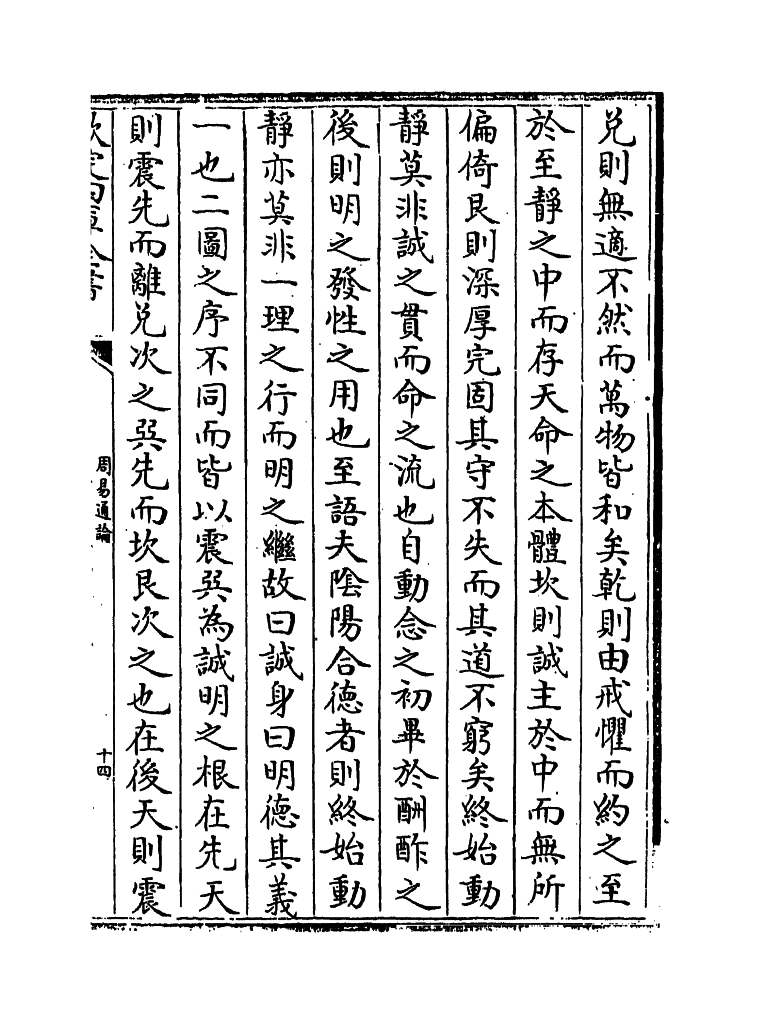 兌則無適不然而萬物皆和矣乾則由戒懼而約之至
於至靜之中而存天命之本體坎則誠主於中而無所
偏倚艮則深厚完固其守不失而其道不窮矣終始動
靜莫非誠之貫而命之流也自動念之初畢於酬酢之
後則明之發性之用也至語夫陰陽合德者則終始動
靜亦莫非一理之行而明之繼故曰誠身曰明德其義
一也二圖之序不同而皆以震巽為誠明之根在先天
則震先而離兌次之巽先而坎艮次之也在後天則震
欽定四庫全書
周易通論
十四